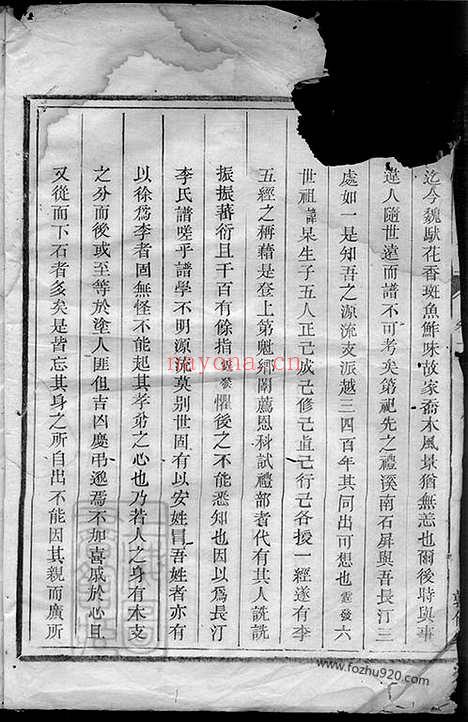 迄今魏馱花香斑魚鮮味故家喬木風景猶無恙也爾後時與事
違人隨世遠而譜不可考矣第祀先之禮溪南石屏與吾長汀三
處如一是知吾之源流支派越三四百年其同出可想也雲發六
世祖諱杲生子五人正己成己修己直己行己各授一經遂有李
五經之稱藉是登上第魁鄉闈薦恩科試禮部者代有其人詵詵
振振蕃衍且千百有餘指懼後之不能悉知也因以爲長汀
李氏譜嗟乎譜學不明源流莫别世固有以安姓冒吾姓者亦有
以徐爲李者固無怪不能起其孝弟之心也乃若人之身有本支
之分而後或至等於塗人匪但吉凶慶弔邈焉不加喜戚於心且
又從而下石者多矣是皆忘其身之所自出不能因其親而廣所
nayona.cn
www.fozhu920.com